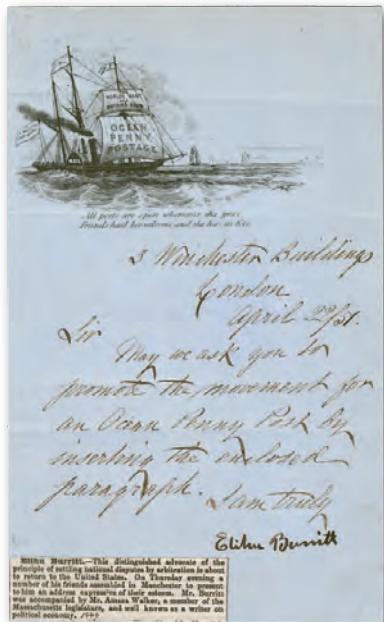 THE
WORLD'S WANT
AND
BRITAIN'S BOON
OCEAN
PENNY
POSTAGE
MAIL
All ports are open wherever she goes
Friends hail her advent and she has no foes
3 Winchester Buildings
London
April 22/51.
Sir
May we ask you to
promote the movement for
an Ocean Penny Post by
inserting the enclosed
paragraph.
I am truly
Elihu Burritt
Elihu Burritt.—This distinguished advocate of the
principle of settling national disputes by arbitration is about
to return to the United States. On Thursday evening a
number of his friends assembled in Manchester to present
to him an address expressive of their esteem. Mr. Burritt
was accompanied by Mr. Amasa Walker, a member of the
Massachusetts legislature, and well known as a writer on
political economy.